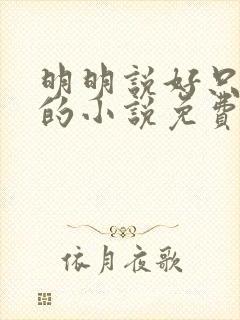 明明說好只
的小說免費
依月夜歌